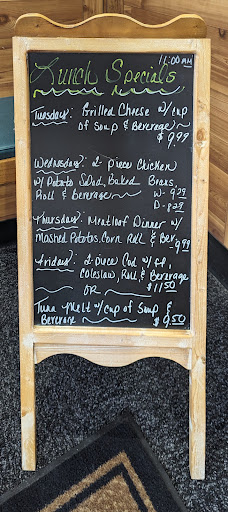 11:00 AM
Lunch Specials
Tuesday: Grilled Cheese w/cup
of Soup & Beverage
$9.99
Wednesday: 2-Piece Chicken
w/ Potato Salad, Baked Beans,
Roll & Beverage W-9.99
Thursday: Meatloaf Dinner w/
Mashed Potatos, Corn, Roll & Bev 9.99
Friday: 2-piece Cod w/ f.f.,
Coleslaw, Roll, & Beverage
$11.50
OR
Tuna Melt w/cup of Soup &
Beverage $9.50